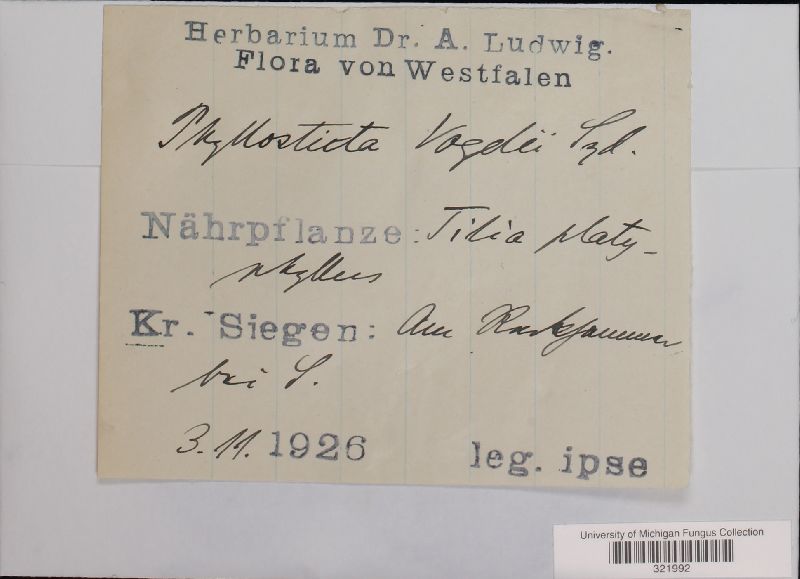 Herbarium Dr. A. Ludwig.
Flora von Westfalen
Phyllosticta Vogelii Syd.
Nährpflanze: Tilia platy-
phyllus
Kr. Siegen: Am
bei S.
3.11.1926 leg. ipse
University of Michigan Fungus Collection
321992